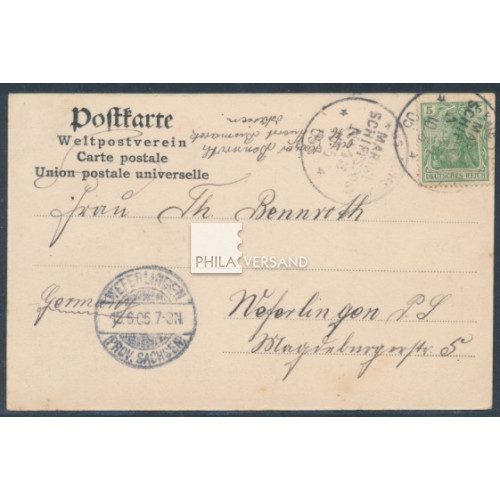 Postkarte
Weltpostverein
Carte postale
Union postale universelle
5
DEUTSCHES REICH
MARINE-
SCHIFFSPOST
Frau Th Bennroth
PHILA VERSAND
Germany
WEFERLINGEN
12.9.05. 7-8N
(PROV. SACHSEN)
Weferlingen P.S
Magdeburgerstr 5